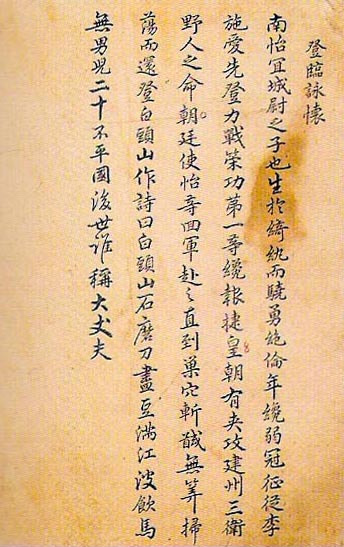 登臨詠懷
南怡宜城尉之子也生於綺紈而驍勇絶倫年纔弱冠征從李
施愛先登力戰策功第一等纔報捷皇朝有夾攻建州三衛
野人之命朝廷使怡等回軍赴之直到巢穴斬馘無筭掃
蕩而還登白頭山作詩曰白頭山石磨刀盡豆滿江波飲馬
無男兒二十不平國後世誰稱大丈夫